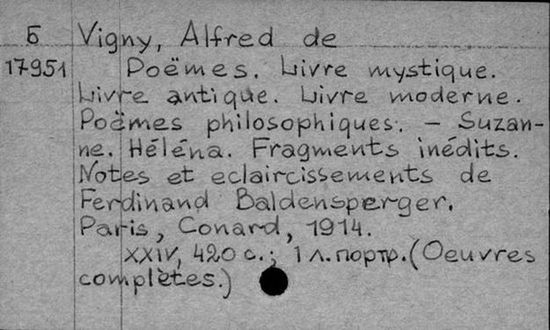 Б Vigny, Alfred de
17951 Poëmes. Livre mystique.
Livre antique. Livre moderne.
Poëmes philosophiques. – Suzan-
ne. Héléna. Fragments inédits.
Notes et eclaircissements de
Ferdinand Baldensperger.
Paris, Conard, 1914.
XXIV, 420 с.; 1 л. портр. (Oeuvres
complètes.)